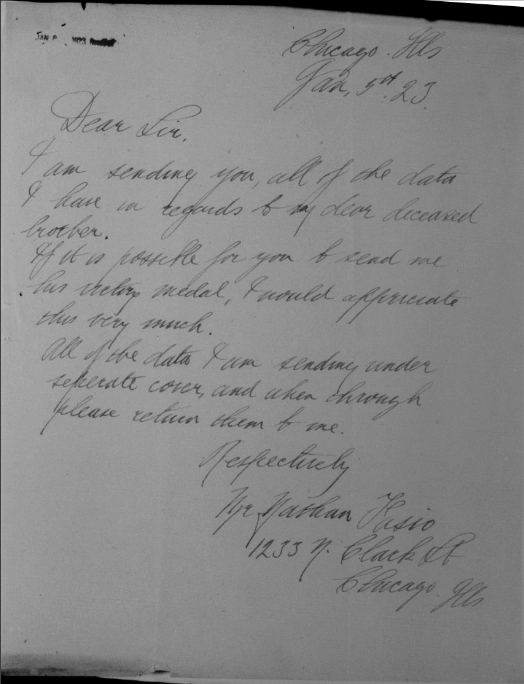 Chicago. Ills
Jan, 5st 23.
Dear Sir.
I am sending you, all of the data
I have in regards to my dear deceased
brother.
If it is possible for you to send me
his victory medal, I would appreciate
this very much.
All of the data I am sending under
seperate cover, and when through
please return them to me.
Respectively
Mr Nathan
1233 N. Clark St
Chicago. Ills